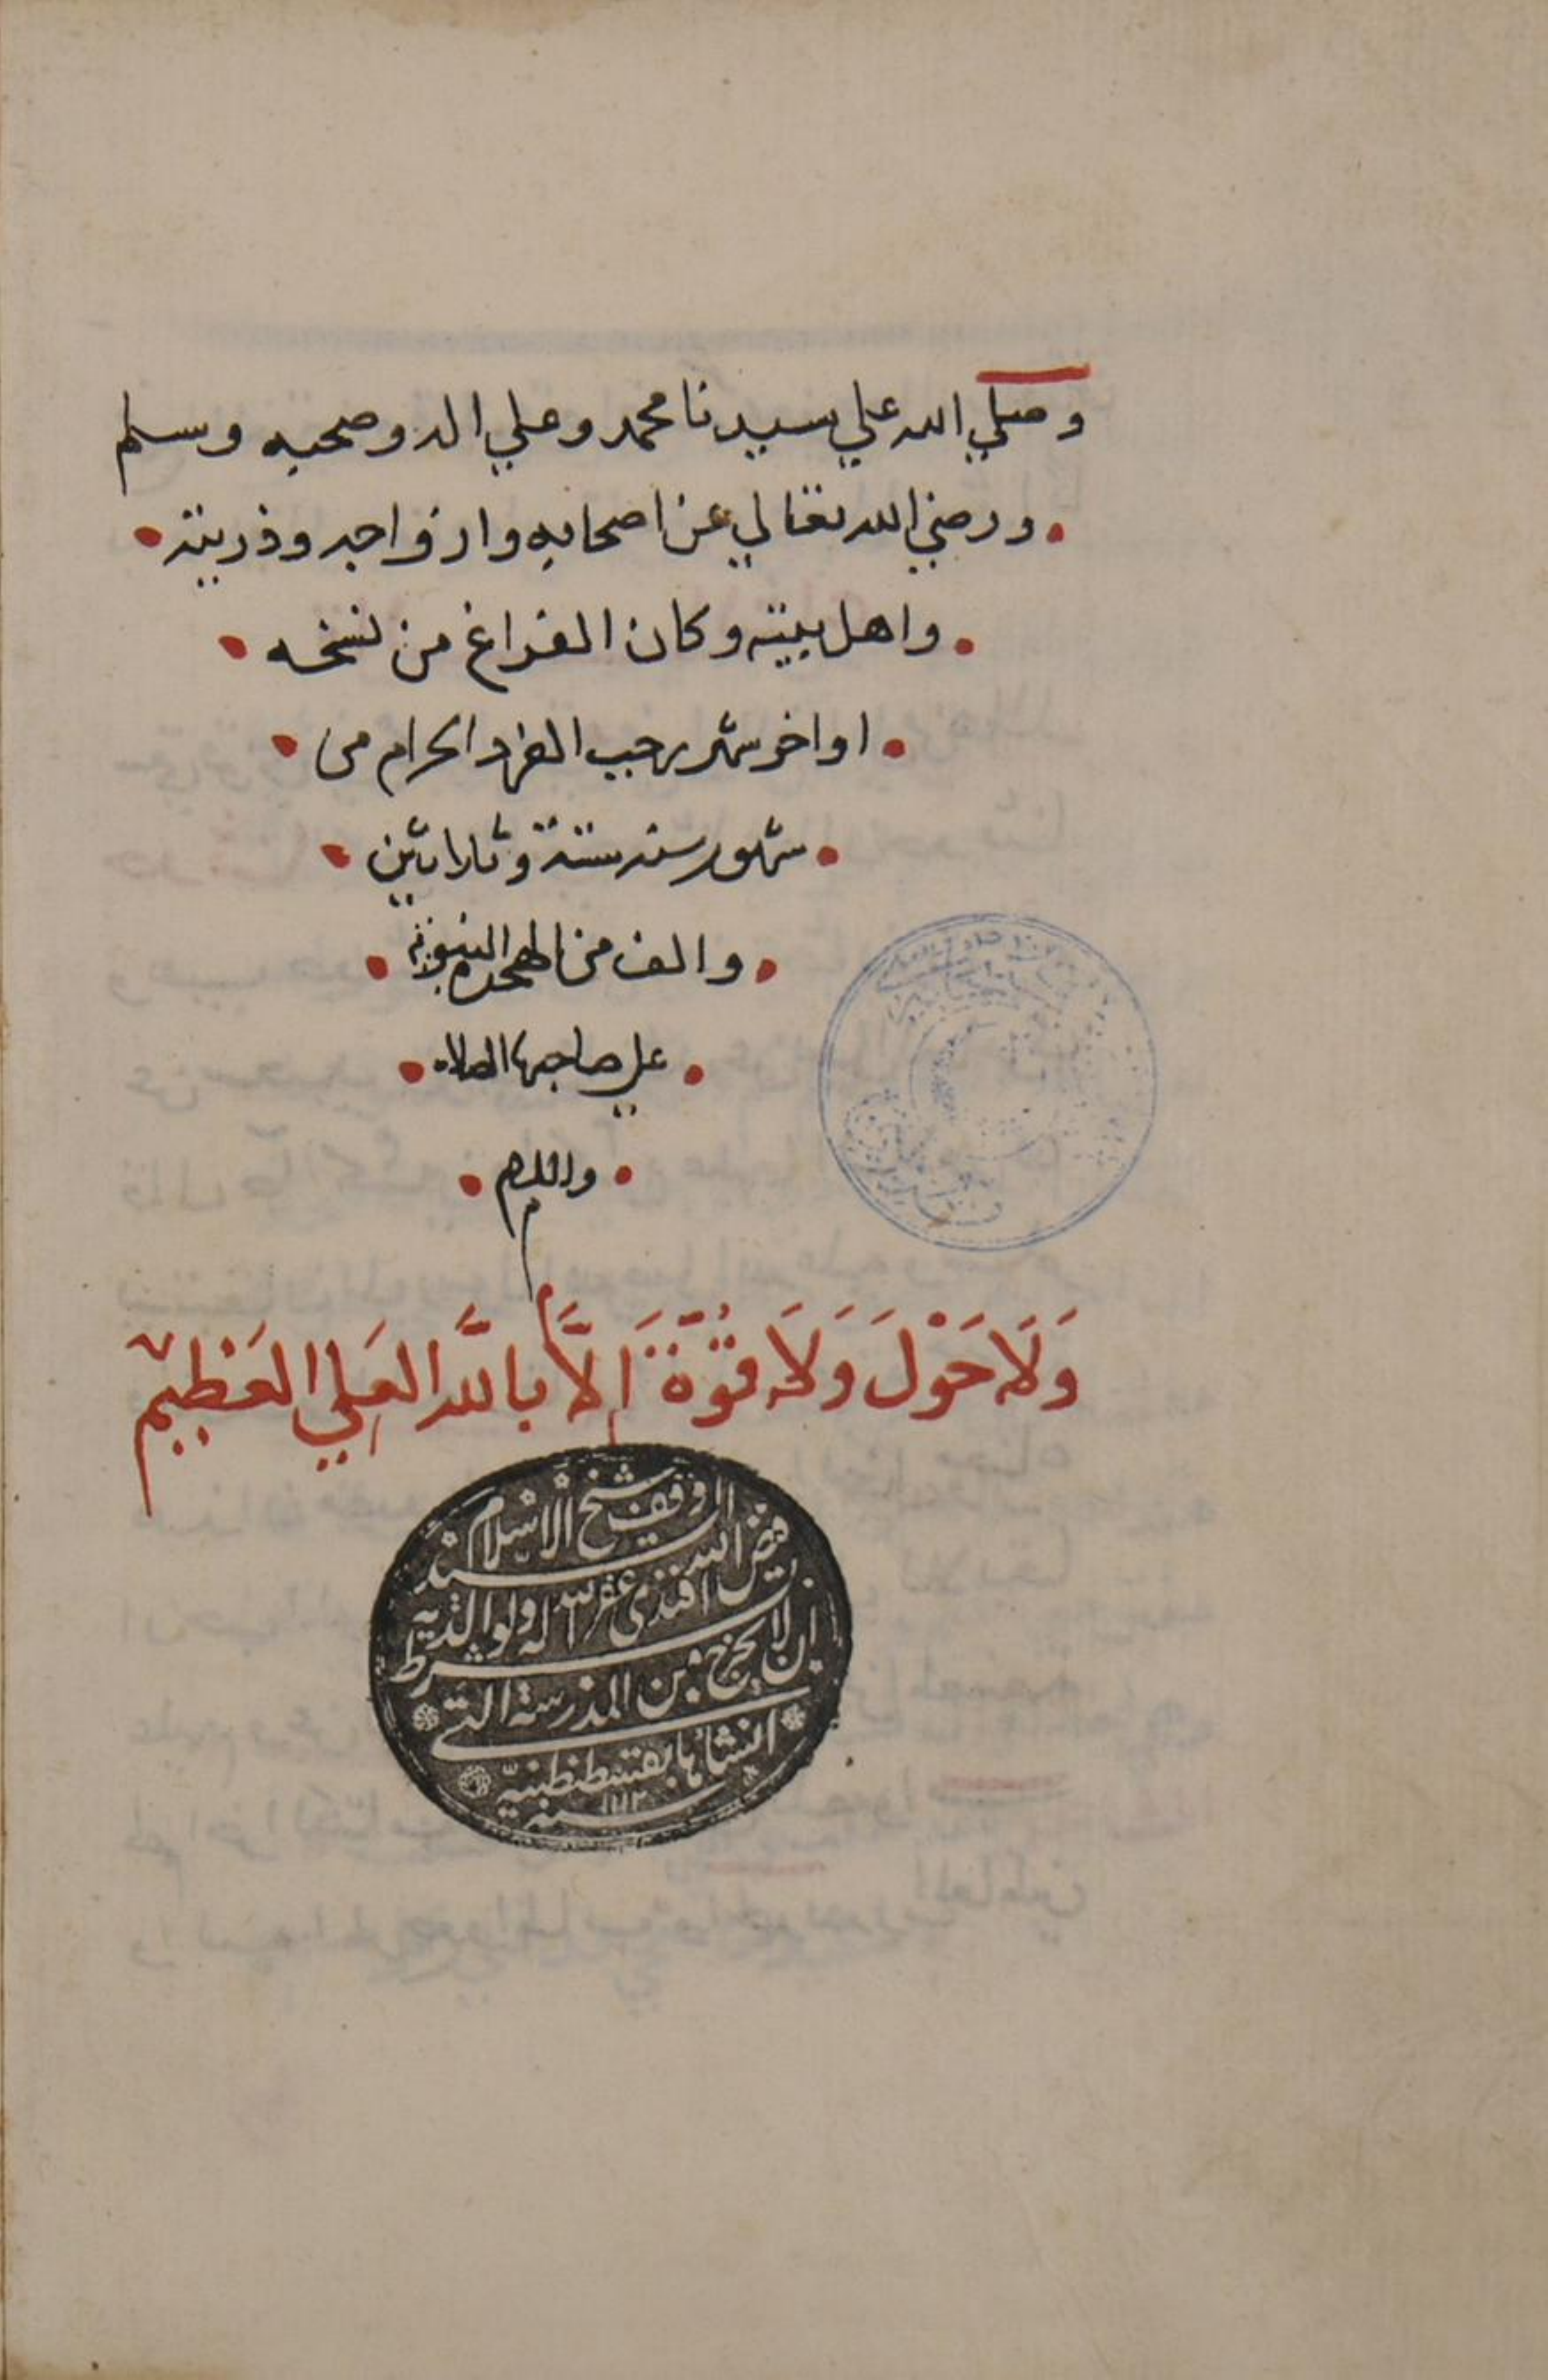 وصلي الله علي سيدنا محمد وعلي اله وصحبه وسلم
ورضي الله تعالي عن اصحابه وازواجه وذريته
واهل بيته وكان الفراغ من نسخه
اواخر شهر رجب الفرد الحرام من
شهور سنه ستة وثلاثين
والف من الهجرة النبوية
علي صاحبها الصلاه
والسلام
وَلَا حَوْلَ وَلَا قُوَّةَ اِلَّا بالله العَلِي العَظِيم
وقف شيخ الاسلام السيد
فيض الله افندي غفر الله له ولوالديه
بشرط ان لا يخرج من المدرسة التي
انشأها بقسطنطنية
سنه ١١١٢